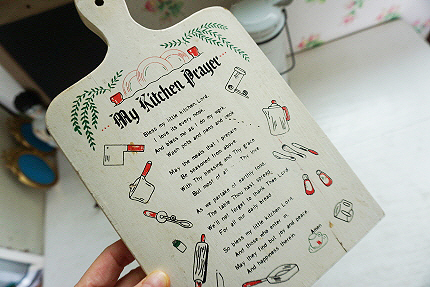 My Kitchen Prayer
Bless my little kitchen Lord,
I love its every nook,
And bless me as I do my work,
Wash pots and pans and cook
May the meals that I prepare
Be seasoned from above
With Thy blessing and Thy Grace
But most of all Thy love
As we partake of earthly food,
The table Thou hast spread,
We'll not forget to thank Thee Lord
For all our daily bread
So bless my little kitchen Lord
And those who enter in,
May they find but joy and peace
And happiness therein
Amen